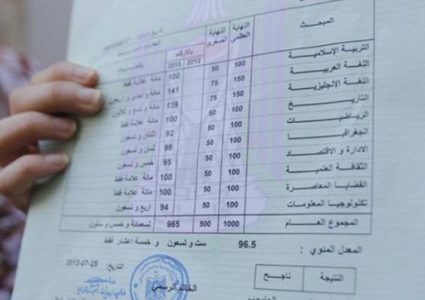 المبحث النهاية العظمى النهاية الصغرى بالأرقام 2013 2012
التربية الإسلامية 100 50 100 مائة علامة فقط
اللغة العربية 150 75 141 مائة و احدى و اربعون
اللغة الإنجليزية 150 75 139 مائة و تسع و ثلاثون
التاريخ 100 50 100 مائة علامة فقط
الرياضيات 100 50 92 اثنتان و تسعون
الجغرافيا 100 50 98 ثمان و تسعون
الادارة و الاقتصاد 100 50 95 خمس و تسعون
الثقافة العلمية 100 50 100 مائة علامة فقط
القضايا المعاصرة 100 50 مائة علامة فقط
تكنولوجيا المعلومات 100 50 94 اربع و تسعون
المجموع العام 1000 500 965 تسعمائة و خمس و ستون
المعدل المئوي : 96.5 ست و تسعون و خمسة اعشار فقط
النتيجة ناجح
التاريخ: 2013-07-25
الخاتم الرسمي